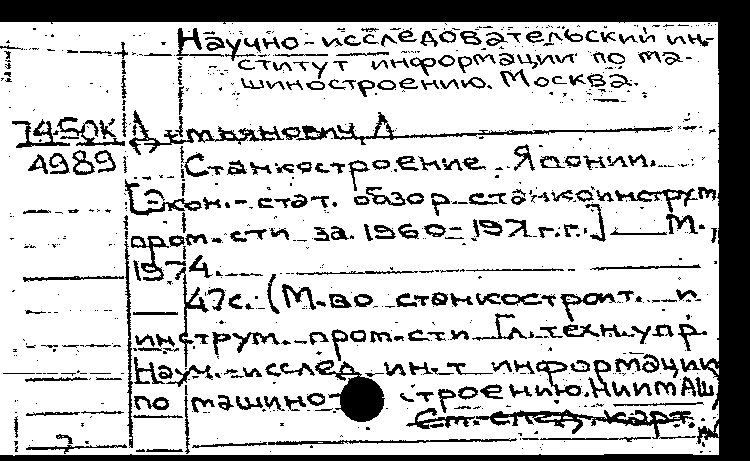 Научно-исследовательский ин-
ститут информации по ма-
шиностроению. Москва.
74-50К Демьянович, Л
4989 Станкостроение Японии.
[Экон.-стат. обзор станкоинструм
пром-сти за 1960-197 г.г.] М.,
1974.
47с. (М-во станкостроит. и
инструм. пром-сти Гл. техн. упр.
Науч.-исслед. ин-т информации
по машиностроению. НИИМАШ)
См. след. карт.